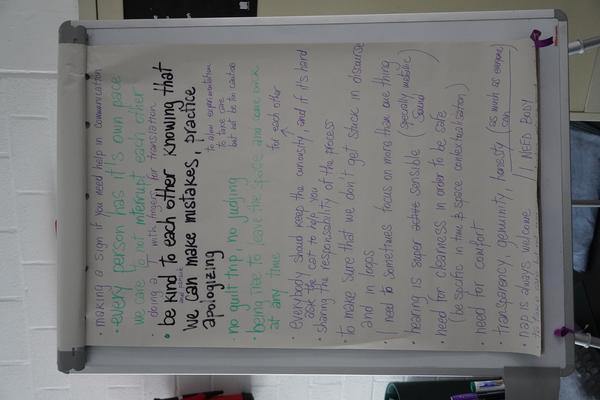 • making a sign if you need help in communication
• every person has it's own pace
we care to not interrupt each other
• doing a T with fingers for translation
• be kind to each other knowing that
we can make mistakes, practice
apologizing
to allow experimentation
to take care
but not be too cautious
for each other
• no guilt trip, no judging
• being free to leave the space and come back
at any time
• everybody should keep the curiosity, and if it's hard
ask the cat to help you
• sharing the responsability of the process
• to make sure that we don't get stuck in discourse
and in loops
• need to sometimes focus on more than one thing
• hearing is super active sensible (specially metallic
sound)
• need for clearness in order to be safe
(be specific in time, & space contextualisation)
• need for comfort
• transparency, genuinity, honesty (as much as everyone
can)
• nap is always welcome / I NEED BODY